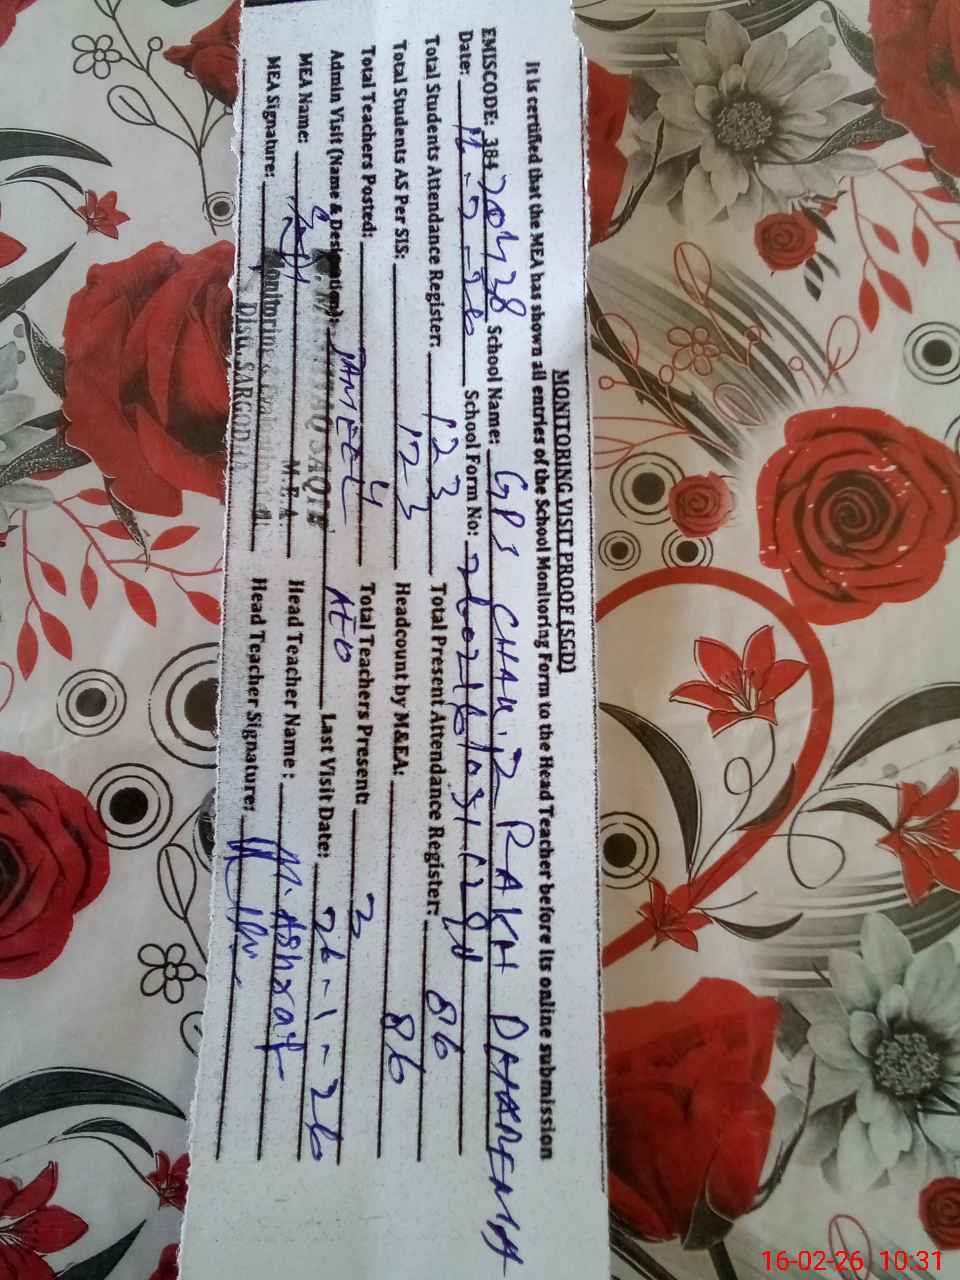 MONITORING VISIT PROOF (SGD)
It is certified that the MEA has shown all entries of the School Monitoring Form to the Head Teacher before its online submission
EMISCODE: 384 School Name: GPS CHAK 2 RAKH
Date: School Form No:
Total Students Attendance Register: 123 Total Present Attendance Register: 86
Total Students AS Per SIS: 123 Headcount by M&EA: 86
Total Teachers Posted: 4 Total Teachers Present: 3
Admin Visit (Name & Designation): JAMEEL AEO Last Visit Date: 26-1-26
MEA Name: M.E.A. Head Teacher Name: M. Ashraf
MEA Signature: Distt. SARGODHA Head Teacher Signature:
16-02-26 10:31